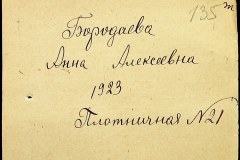 135
Бородаева
Анна Алексеевна
1923
Плотничная №21